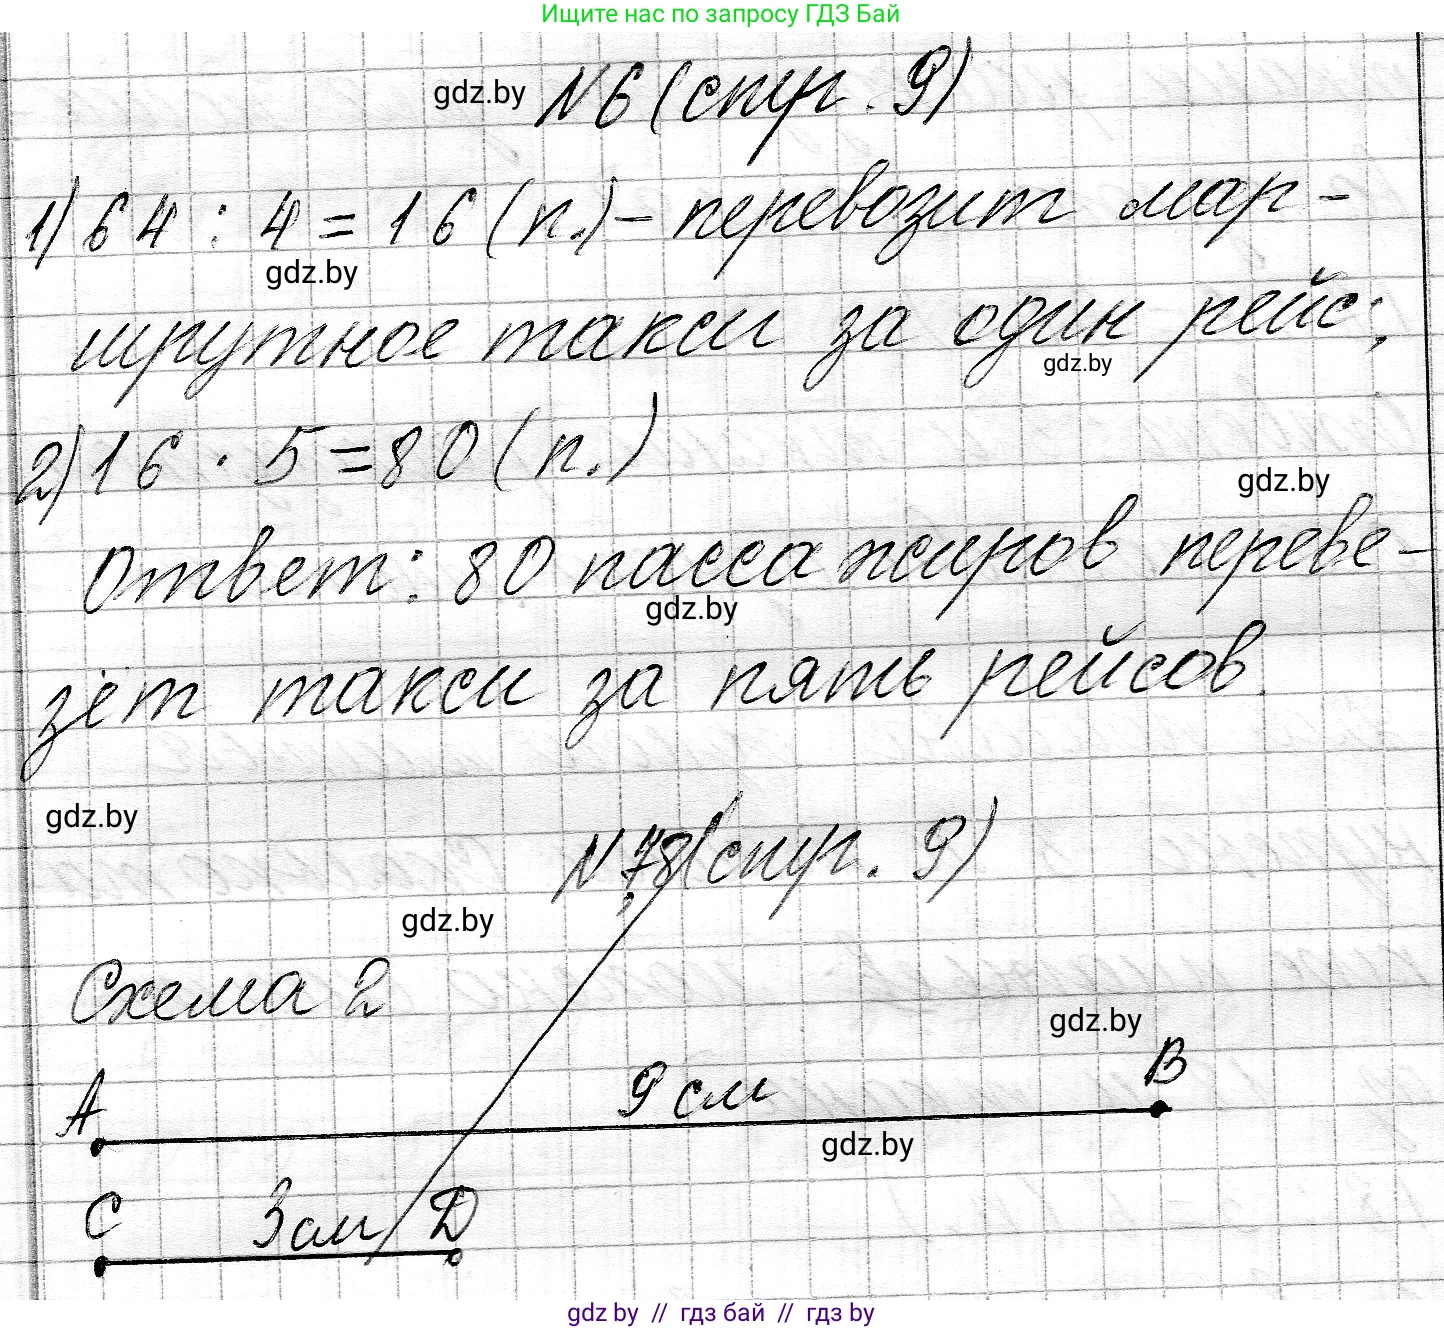 Ищите нас по запросу ГДЗ Бай
gdz.by
N6 (стр. 9)
1) 64 : 4 = 16 (п.) - перевозит мар-
gdz.by
шрутное такси за один рейс;
gdz.by
2) 16 · 5 = 80 (п.)
gdz.by
Ответ: 80 пассажиров переве-
gdz.by
зёт такси за пять рейсов.
gdz.by
N 7,8 (стр. 9)
gdz.by
Схема 2
gdz.by
A 9 см B
gdz.by
C 3 см D
gdz.by // гдз бай // гдз by